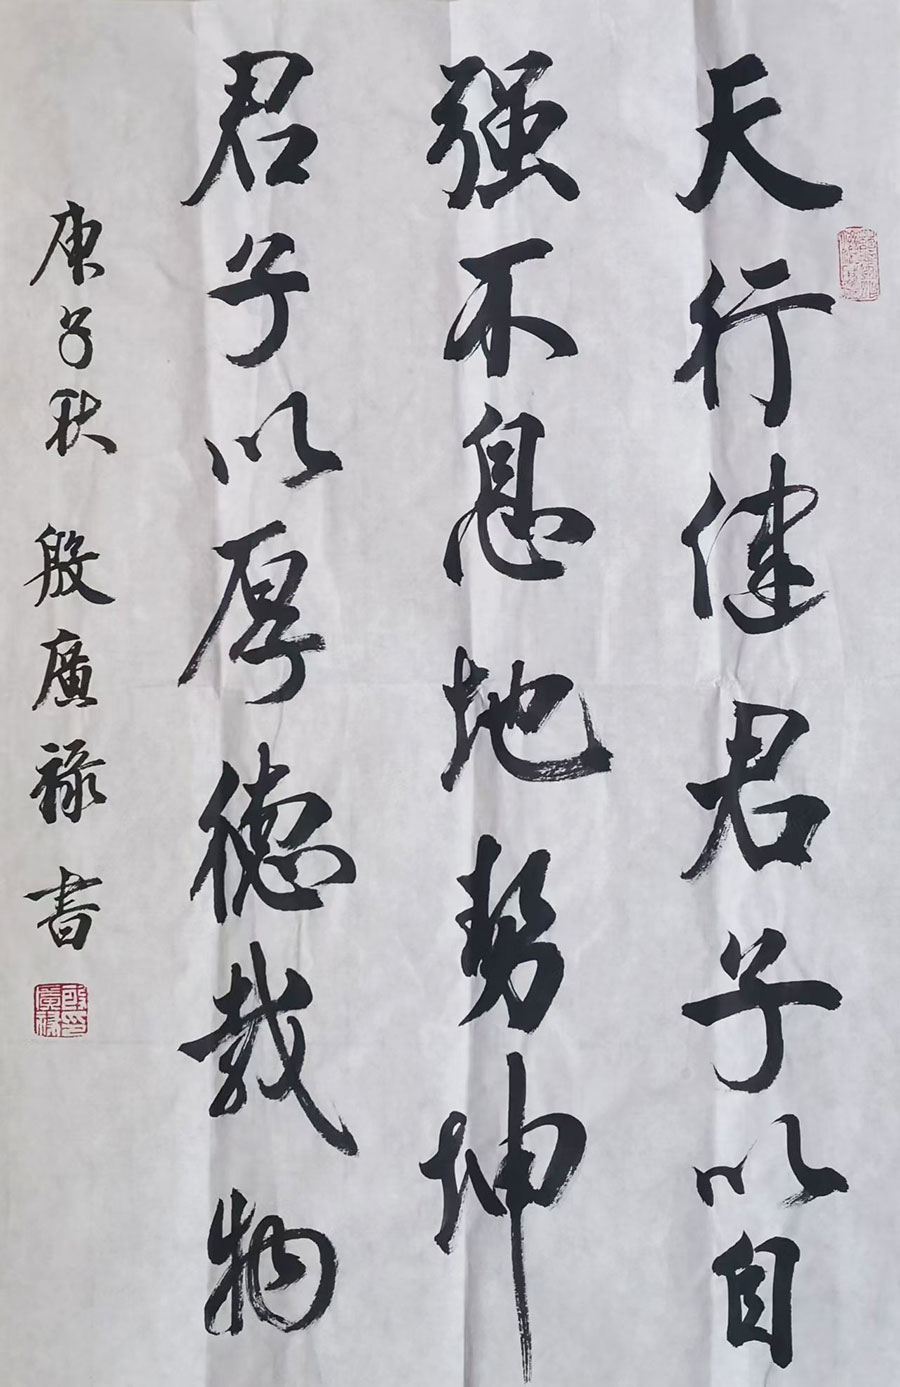 天行健君子以自
强不息地势坤
君子以厚德载物
庚子秋 殷廣禄書